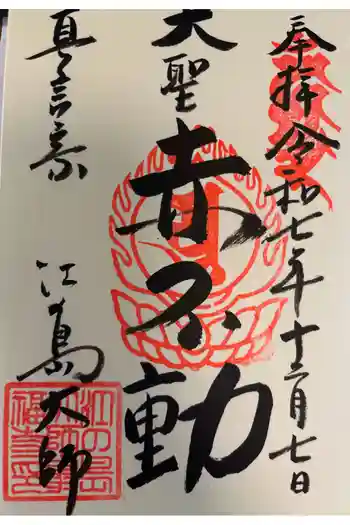 奉拝 令和七年十二月七日
大聖
赤不動
真言宗
江の島大師